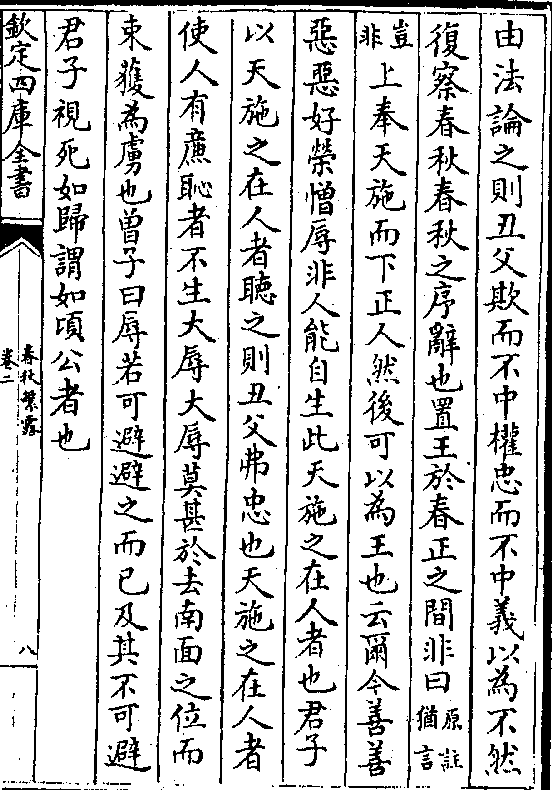 由法論之則丑父欺而不中權忠而不中義以為不然
復察春秋春秋之序辭也置王於春正之間非曰原註猶言
豈非上奉天施而下正人然後可以為王也云爾今善善
惡惡好榮憎辱非人能自生此天施之在人者也君子
以天施之在人者聽之則丑父弗忠也天施之在人者
使人有廉恥者不生大辱大辱莫甚於去南面之位而
束獲為虜也曾子曰辱若可避避之而已及其不可避
君子視死如歸謂如頃公者也
欽定四庫全書
春秋繁露
卷二
八